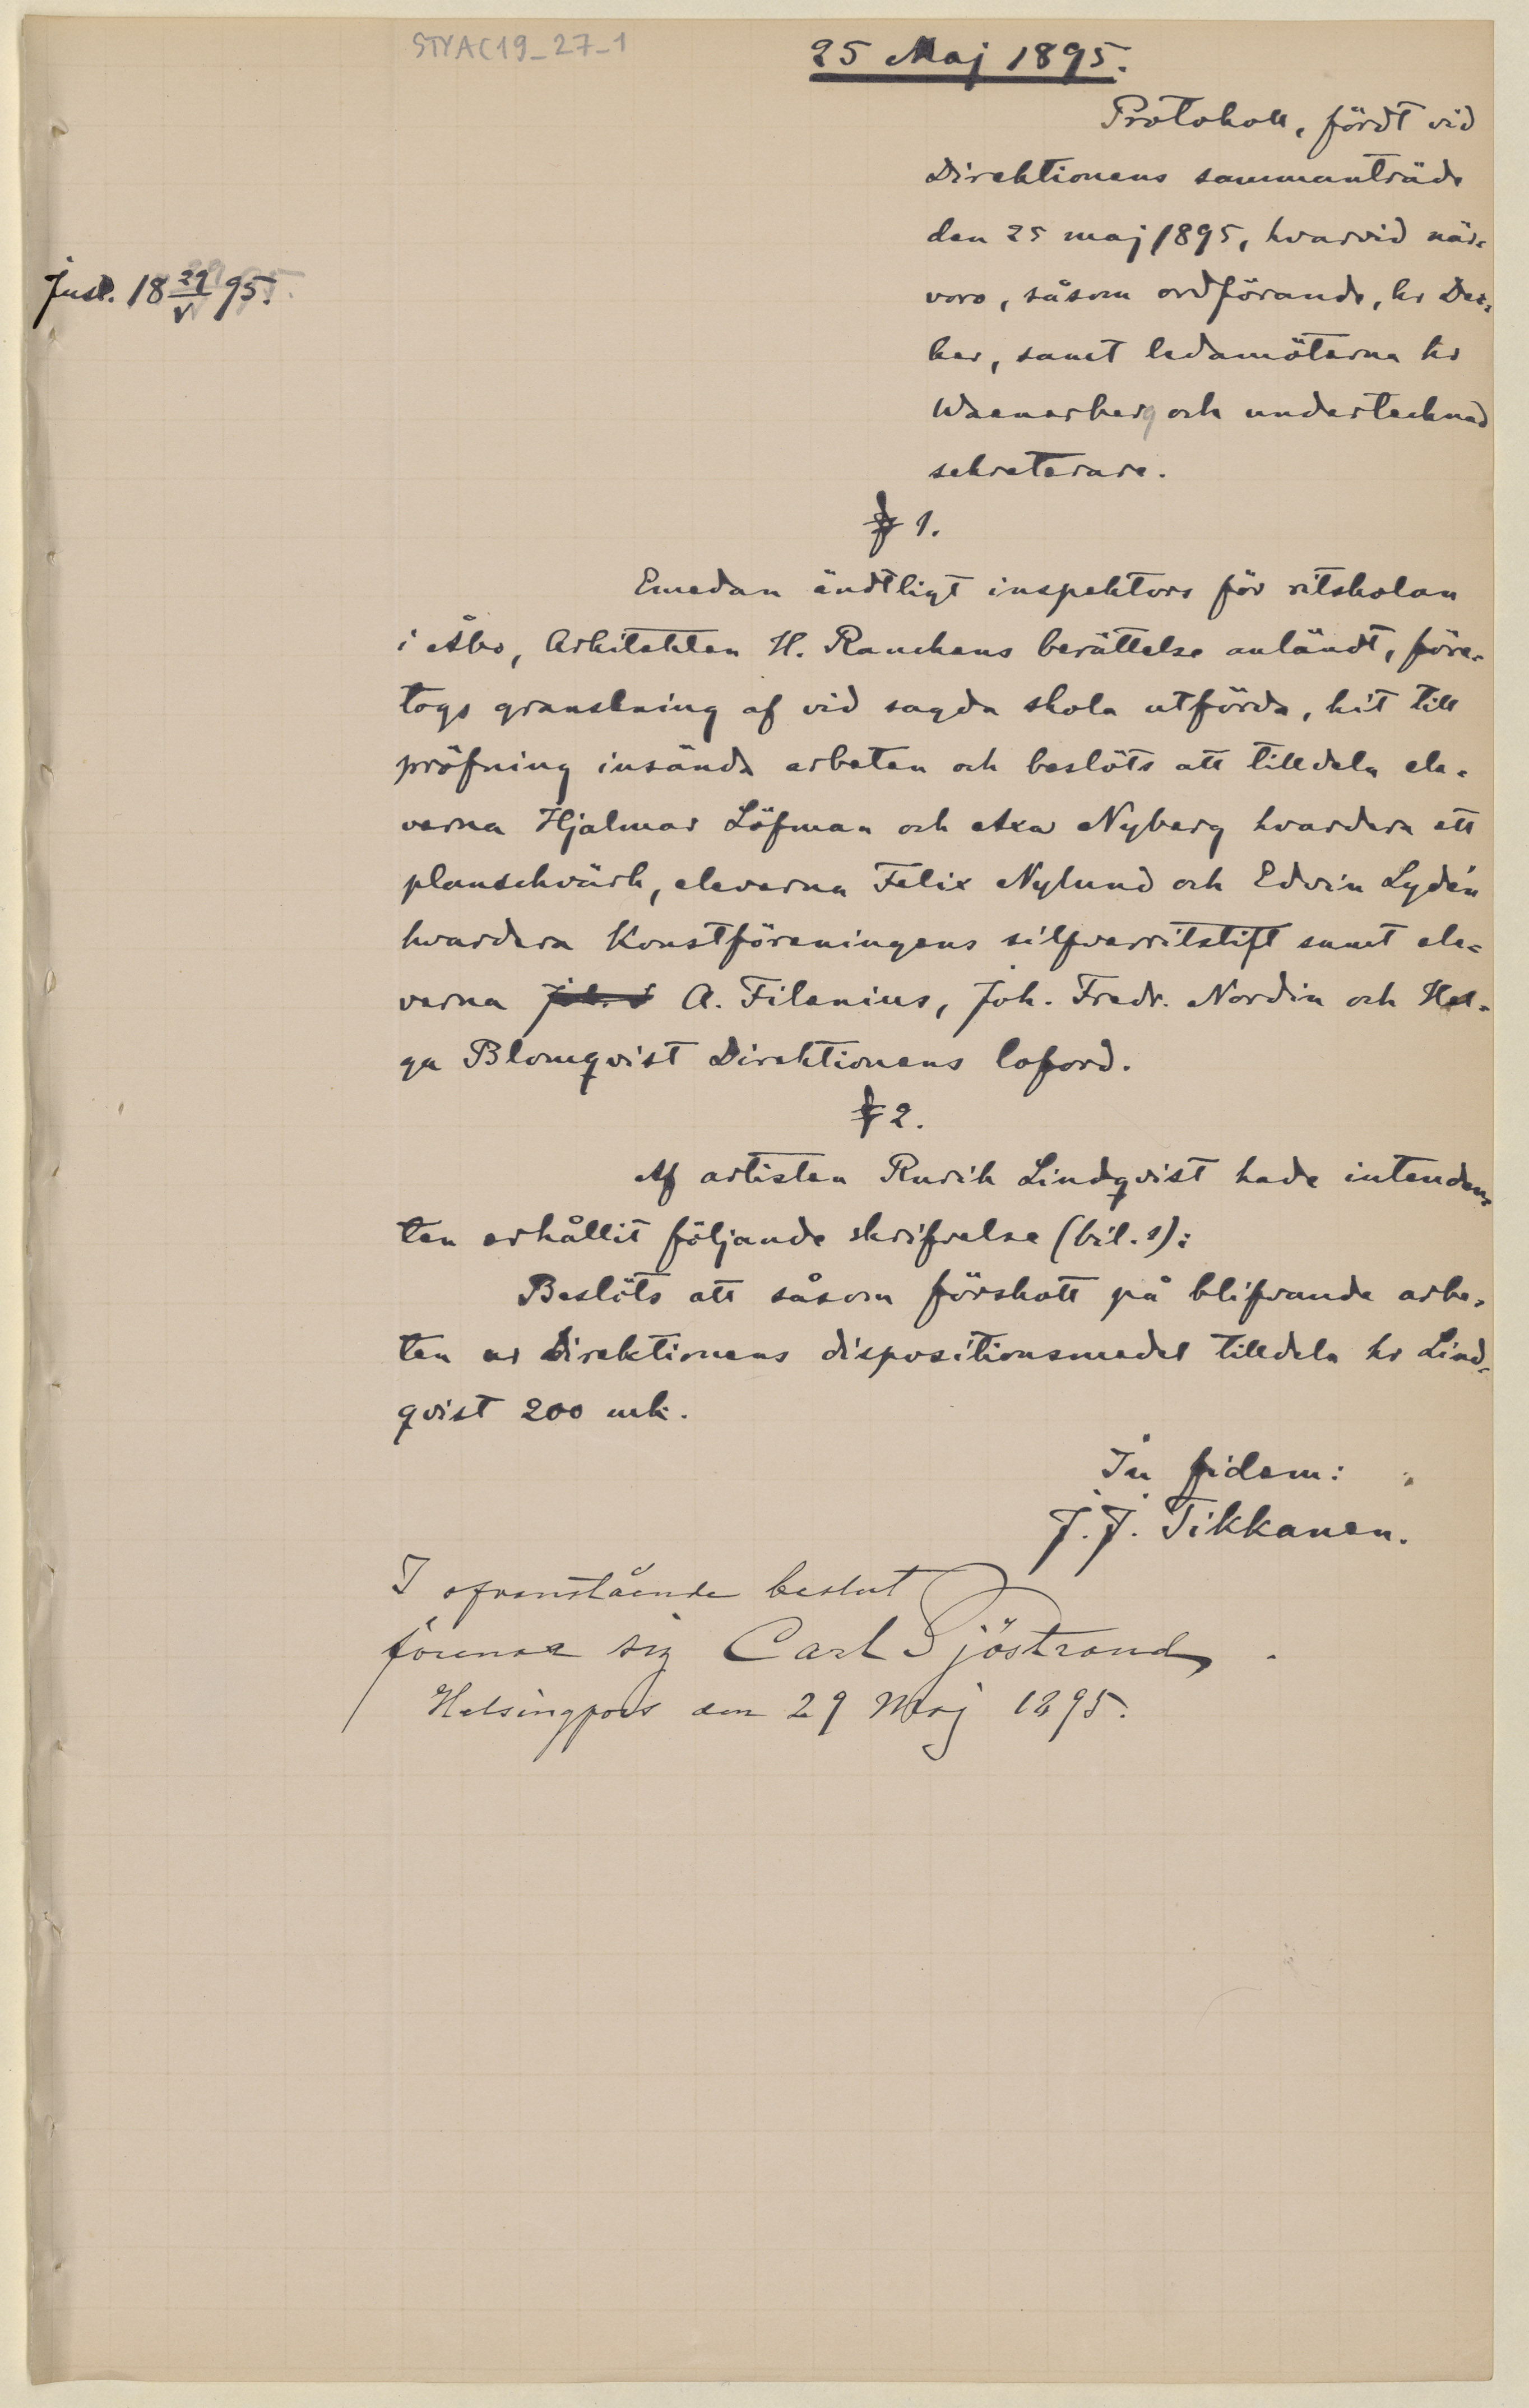 STYAC19_27-1
25 Maj 1895.
Protokoll, fördt vid
Direktionens sammanträde
den 25 maj 1895, hvarvid när-
voro, såsom ordförande, hr Bec-
ker, samt ledamöterna hr
Waenerberg och undertecknad
sekreterare.
Just. 18 29/V 95.
§ 1.
Emedan ändtligt inspektors för ritskolan
i Åbo, Arkitekten H. Rauchens berättelse anländt, före-
togs granskning af vid sagda skola utförda, hit till
pröfning insända arbeten och beslöts att tilldela ele-
verna Hjalmar Löfman och Axa Nyberg hvardera ett
planschvärk, eleverna Felix Nylund och Edvin Lydén
hvardera Konstföreningens silfverritstift samt ele-
verna A. Filenius, Joh. Fredr. Nordin och Hel-
ga Blomqvist Direktionens loford.
§ 2.
Af artisten Rurik Lindqvist hade intenden-
ten erhållit följande skrifvelse (bil. 1):
Beslöts att såsom förskott på blifvande arbe-
ten ur Direktionens dispositionsmedel tilldela hr Lind-
qvist 200 mk.
In fidem:
J. J. Tikkanen.
I ofvanstående beslut
förenar sig Carl Sjöstrand
Helsingfors den 29 Maj 1895.